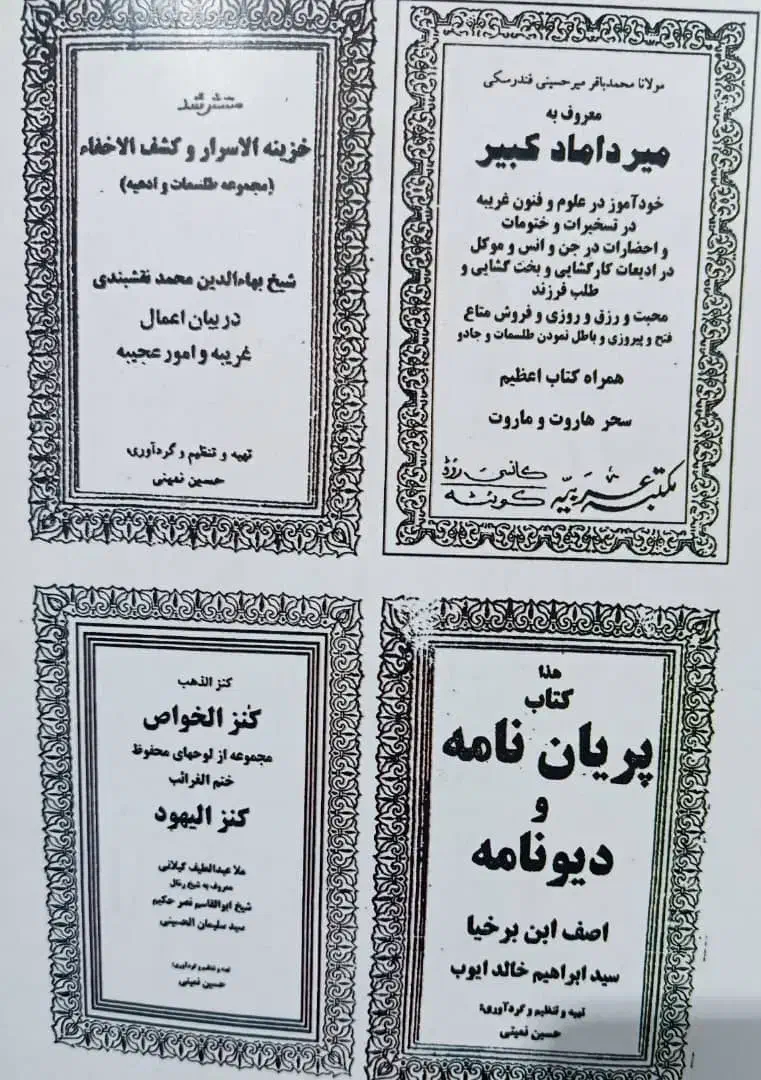 مولانا محمدباقر میرحسینی فندرسکی
معروف به
میرداماد کبیر
خودآموز در علوم و فنون غریبه
در تسخیرات و ختومات
و احضارات در جن و انس و موکل
در ادیعات کارگشایی و بخت گشایی و
طلب فرزند
محبت و رزق و روزی و فروش متاع
فتح و پیروزی و باطل نمودن طلسمات و جادو
همراه کتاب اعظیم
سحر هاروت و ماروت
مکتبه عربیه
کانسی روڈ
کوئٹه
خزینه الاسرار و کشف الاخفاء
(مجموعه طلسمات و ادعیه)
شیخ بهاءالدین محمد نقشبندی
در بیان اعمال
غریبه و امور عجیبه
تهیه و تنظیم و گردآوری:
حسین نمینی
هذا
کتاب
پریان نامه
و
دیونامه
اصف ابن برخیا
سید ابراهیم خالد ایوب
تهیه و تنظیم و گردآوری:
حسین نمینی
کنز الذهب
کنز الخواص
مجموعه از لوحهای محفوظ
ختم الغرائب
کنز الیهود
ملا عبدالطیف گیلانی
معروف به شیخ رمال
شیخ ابوالقاسم نصر حکیم
سید سلیمان الحسینی
تهیه و تنظیم و گردآوری:
حسین نمینی